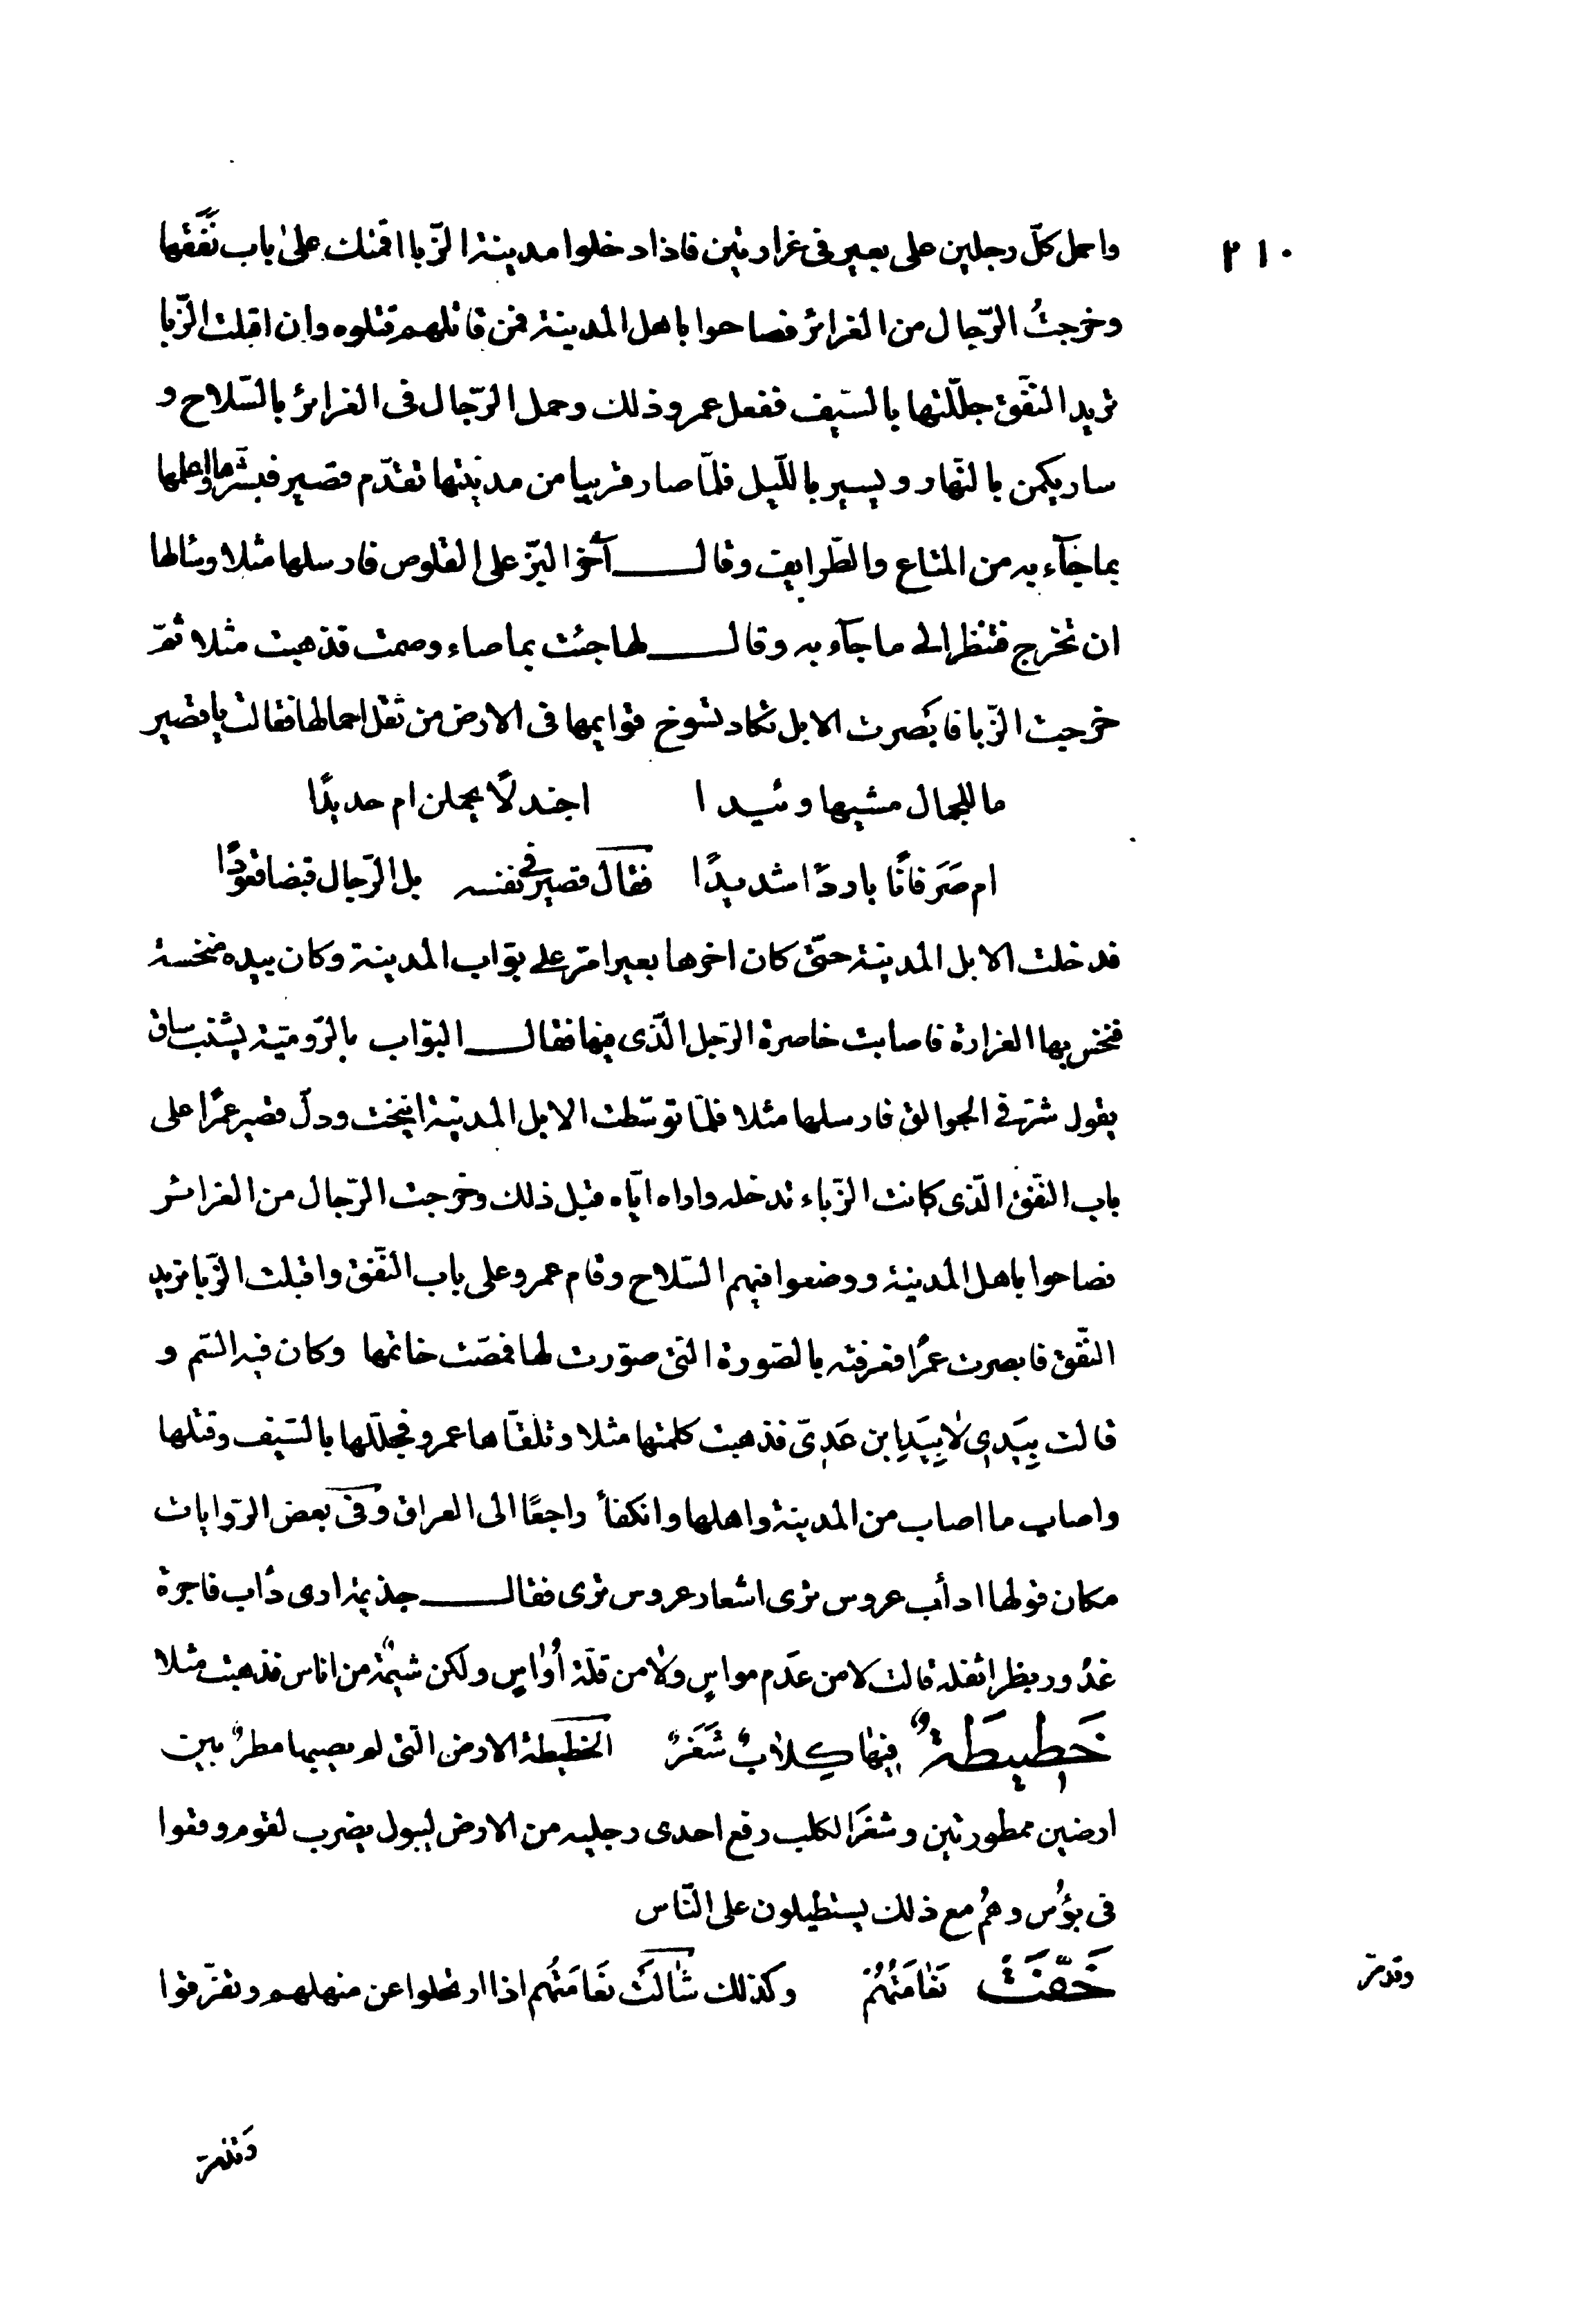 ٢١٠
واحمل كلّ رجلين على بعير فى غرارتين فاذا دخلوا مدينة الزّبا اقمتك على باب نَفَقها
وخرجتُ الرّجال من الغرائر فصاحوا باهل المدينة فمن قاتلهم قتلوه وان اقبلت الزّبا
تريد النّفق جلّلتها بالسّيف ففعل عمرو ذلك وحمل الرّجال فى الغرائر بالسّلاح و
سار يكمن بالنّهار ويسير باللّيل فلمّا صار قريبا من مدينتها تقدّم قصير فبشّرها واعلمها
بما جآء به من المتاع والطّرايف وقال آخر البزّ على القلوص فارسلها مثلا وسالها
ان تخرج فتنظر الى ما جآء به وقال لها جئت بما صاء وصمت فذهبت مثلا ثمّ
خرجت الزّبا فابَصرت الابل تكاد تسوخ قوايمها فى الارض من ثقل احمالها فقالت يا قصير
ما للجمال مشيها وئيدا اجندلًا يحملن ام حديدًا
ام صَرَفانًا باردًا شديدًا فقال قصير فى نفسه بل الرّجال قبضا قعودًا
فدخلت الابل المدينة حتّى كان اخرها بعيرا مرّ على بوّاب المدينة وكان بيده منخسة
فنخس بها الغرارة فاصابت خاصرة الرّجل الّذى فيها فقال البوّاب بالرّوميّة بشنب ساق
يقول شرّ فى الجوالق فارسلها مثلا فلمّا توسّطت الابل المدينة انيخت ودلّ قصير عمرًا على
باب النّفق الّذى كانت الزّباء تدخله واراه ايّاه قبل ذلك وخرجت الرّجال من الغرائر
فصاحوا باهل المدينة ووضعوا فيهم السّلاح وقام عمرو على باب النّفق واقبلت الزّبا تريد
النّفق فابصرت عمرًا فعرفته بالصّورة التى صوّرت لها فمصّت خاتمها وكان فيه السّم و
قالت بِيَدِى لا بِيَدِ ابن عَدِىّ فذهبت كلمتها مثلا وتلقّاها عمرو فجلّلها بالسّيف وقتلها
واصاب ما اصاب من المدينة واهلها وانكفأ راجعًا الى العراق وفى بعض الرّوايات
مكان قولها ادأب عروس ترى اشعار عروس ترى فقال جذيمة ارى دأب فاجرة
غدُور بظرا تفلة قالت لا من عدَم مواسٍ ولا من قلّة اُواسٍ ولكن شيمةٌ من اناس فذهبت مثلا
خَطِيطَةٌ فِيهَا كِلابٌ شَغَرٌ الخطيطة الارض التى لم يصيبها مطرٌ بين
ارضين ممطورتين وشغَر الكلب رفع احدى رجليه من الارض ليبول يضرب لقوم وقعوا
فى بؤُس وهمُ مع ذلك يستطيلون على النّاس
خَفَّتْ نَعَامَتُهُمْ وكذلك شَالَتْ نَعَامَتُهم اذا ارتحلوا عن منهلهم وتفرّقوا
وقد مرّ